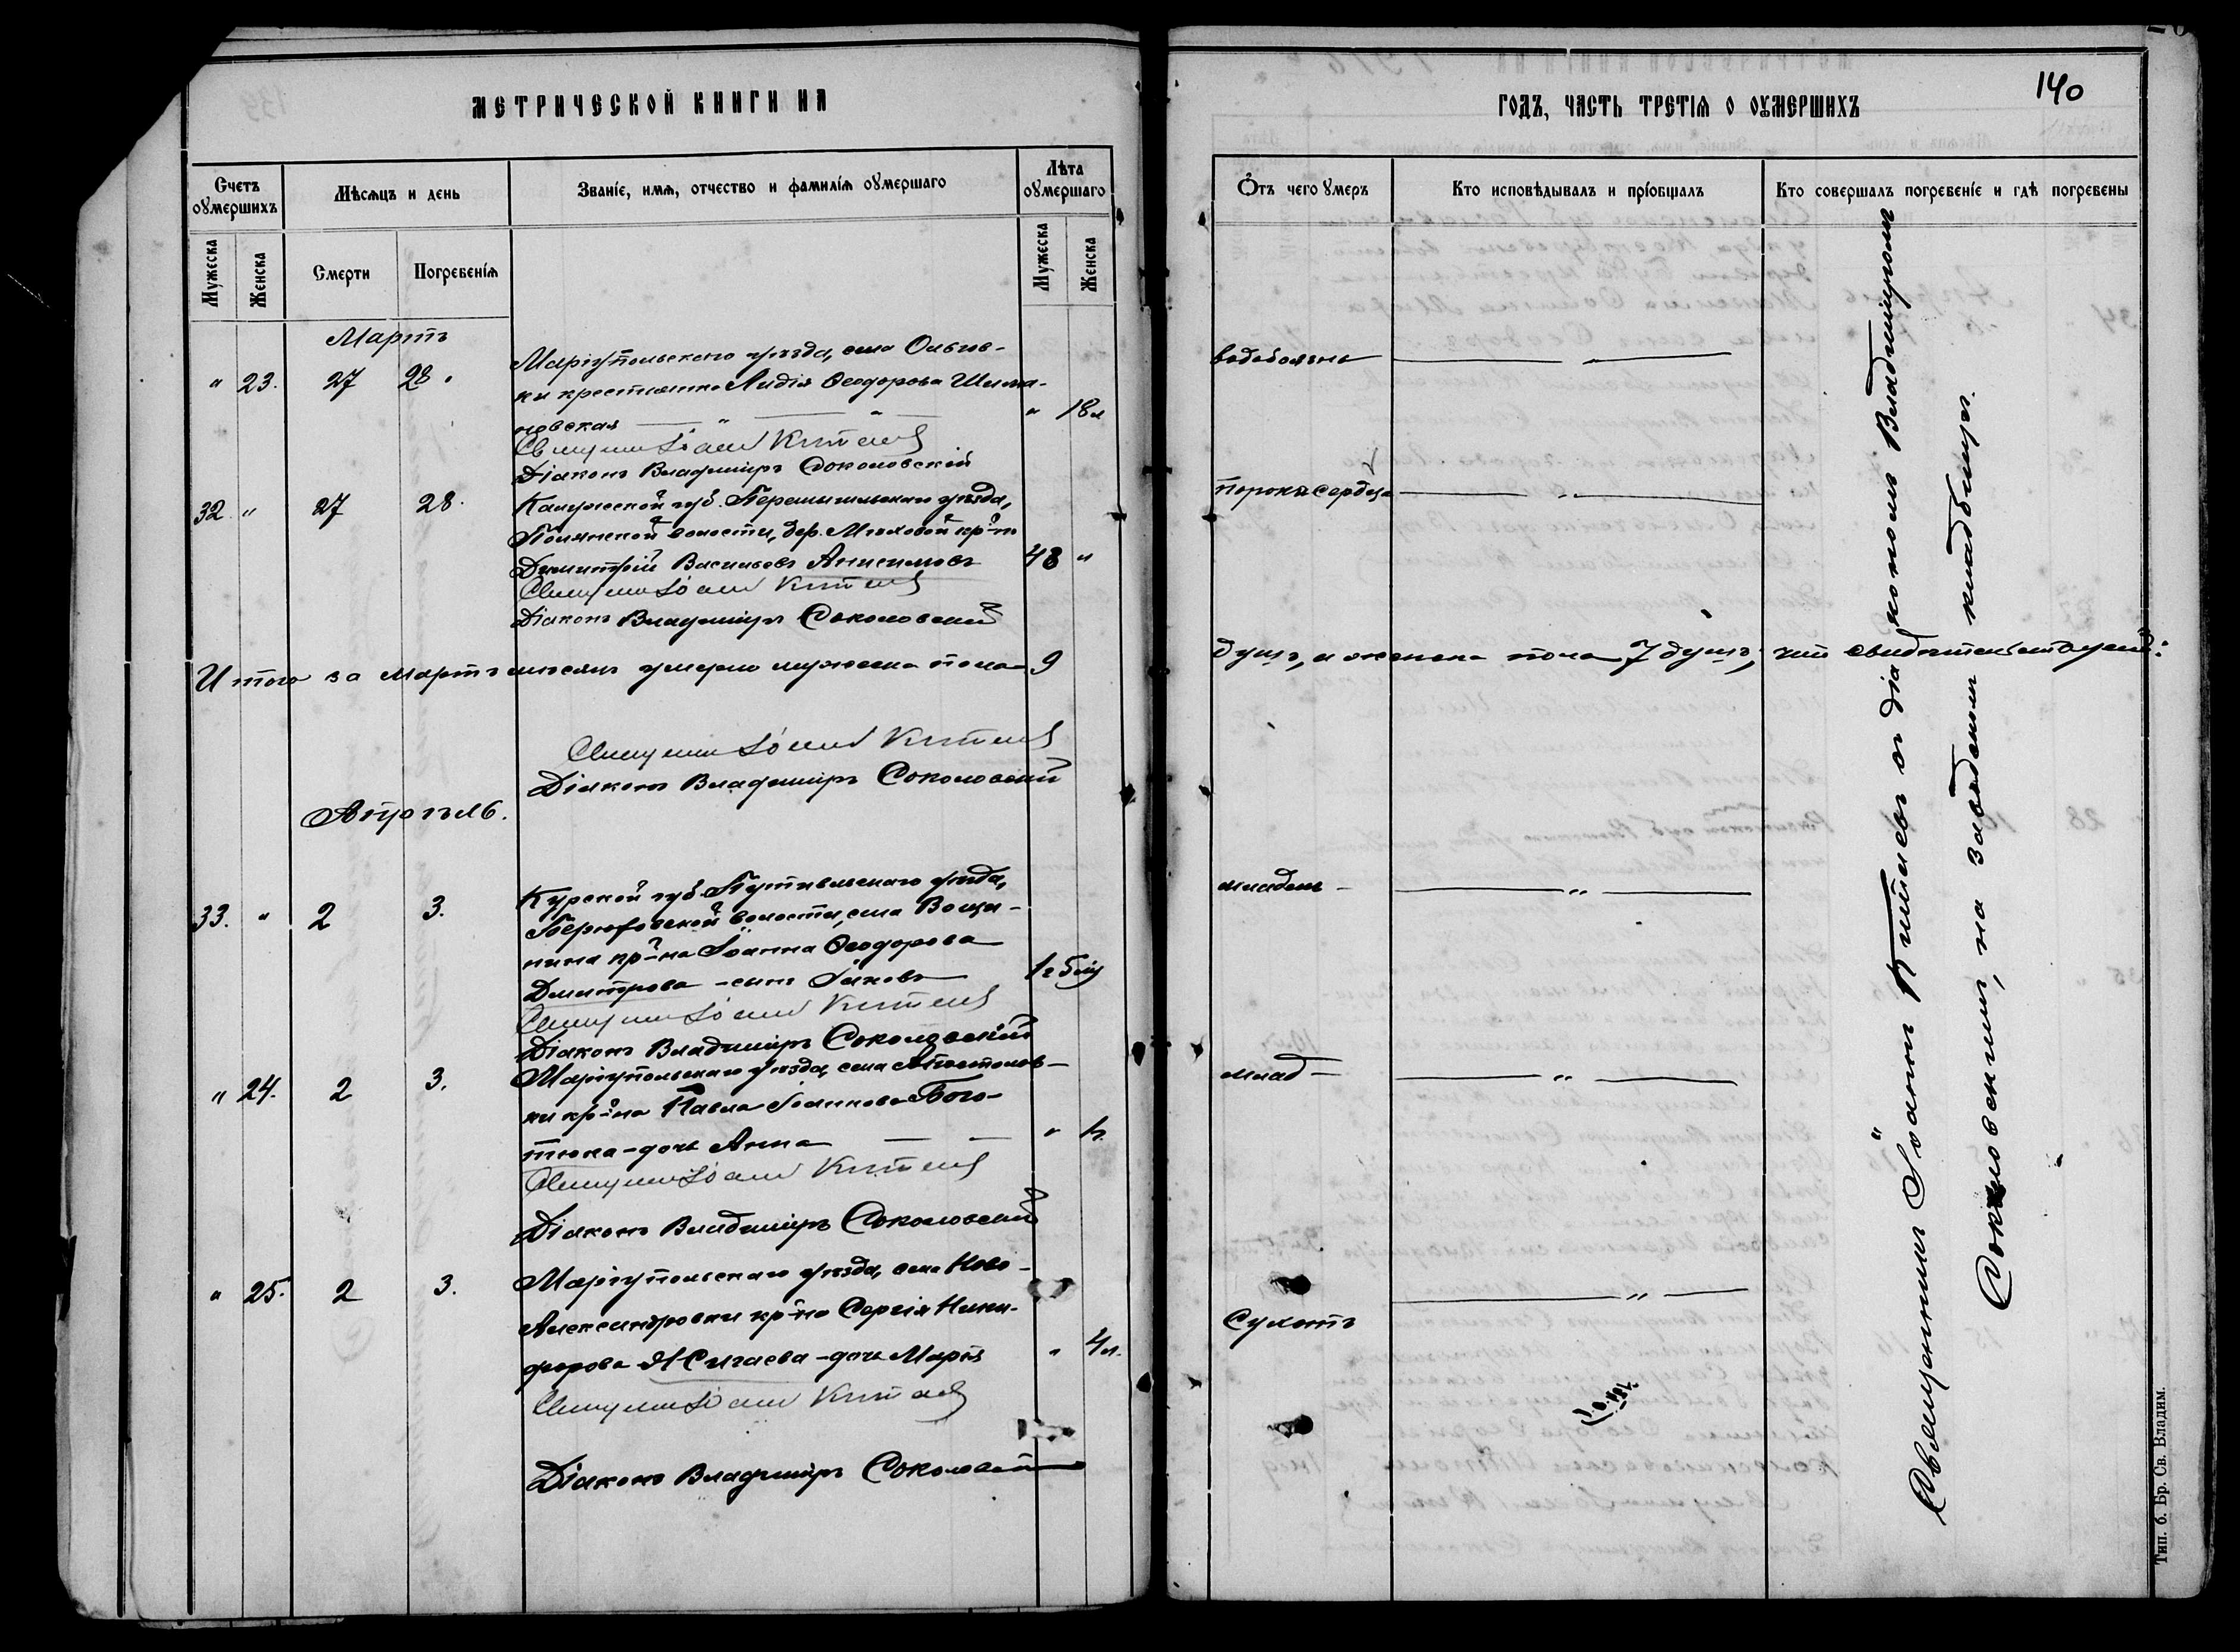 МЕТРИЧЕСКОЙ КНИГИ НА
Счетъ оумершихъ
Мѣсяцъ и день
Званіе, имя, отчество и фамилія оумершаго
Лѣта оумершаго
Мужеска
Женска
Смерти
Погребенія
Мужеска
Женска
Мартъ
" 23. 27 28.
Маріупольскаго уѣзда, села Ольгов-
ки крестьянка Лидія Ѳеодорова Шима-
новская — " — " —
" 18 л
Священникъ Іоаннъ Китаевъ
Діаконъ Владиміръ Соколовскій
32 " 27 28.
Калужской губ. Перемышльскаго уѣзда,
Полянской волости, дер. Мѣховой кр-нъ
Димитрій Васильевъ Анисимовъ
48 "
Священникъ Іоаннъ Китаевъ
Діаконъ Владиміръ Соколовскій
Итого за Мартъ мѣсяцъ умерло мужеска пола 9
Священникъ Іоаннъ Китаевъ
Діаконъ Владиміръ Соколовскій
Апрѣль.
33. " 2 3.
Курской губ. Путивльскаго уѣзда,
волости, села Вощи-
нина кр-на Іоанна Ѳеодорова
Дмитрова - сынъ Іаковъ
1 г 5 мц
Священникъ Іоаннъ Китаевъ
Діаконъ Владиміръ Соколовскій
" 24. 2 3.
Маріупольскаго уѣзда, села Апостолов-
ки кр-на Павла Іоаннова Бого-
тюка - дочь Анна — —
"
Священникъ Іоаннъ Китаевъ
Діаконъ Владиміръ Соколовскій
" 25. 2 3.
Маріупольскаго уѣзда, села Ново-
Александровки кр-на Сергія Ники-
форова Сигаева - дочь Марія
" 4 л.
Священникъ Іоаннъ Китаевъ
Діаконъ Владиміръ Соколовскій
140
ГОДЪ, ЧАСТЬ ТРЕТІЯ О ОУМЕРШИХЪ
Отъ чего умеръ
Кто исповѣдывалъ и пріобщалъ
Кто совершалъ погребеніе и гдѣ погребены
водобоязнь — " —
порокъ сердца — " —
душъ, и женска пола 7 душъ, что свидѣтельствуемъ:
младен — — " —
млад — — " —
Сухотъ — " —
Священникъ Іоаннъ Китаевъ съ діакономъ Владиміромъ
Соколовскимъ, на заводскомъ кладбищѣ.
Тип. б. Бр. Св. Владим.